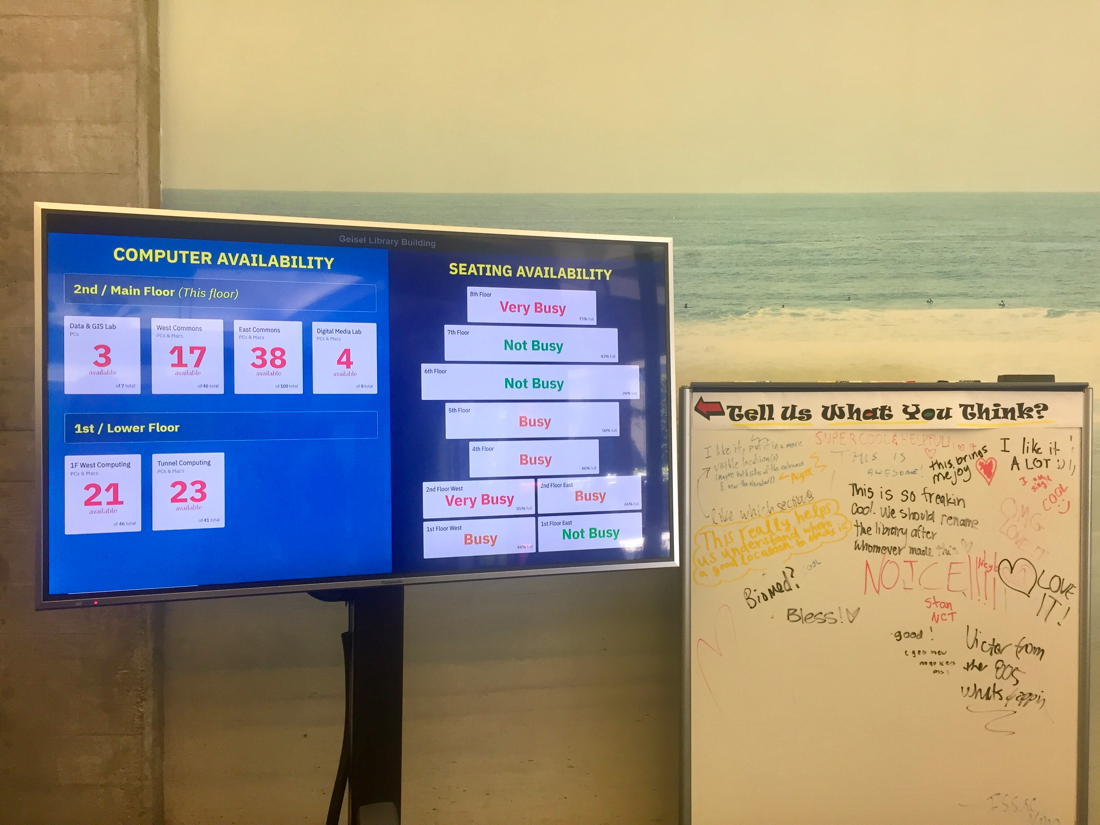 Geisel Library Building
COMPUTER AVAILABILITY
2nd / Main Floor (This floor)
Data & GIS Lab
PCs
3
available
of 7 total
West Commons
PCs & Macs
17
available
of 46 total
East Commons
PCs & Macs
38
available
of 100 total
Digital Media Lab
PCs & Macs
4
available
of 8 total
1st / Lower Floor
1F West Computing
PCs & Macs
21
available
of 46 total
Tunnel Computing
PCs & Macs
23
available
of 41 total
SEATING AVAILABILITY
8th Floor
Very Busy
7th Floor
Not Busy
6th Floor
Not Busy
5th Floor
Busy
4th Floor
Busy
2nd Floor West
Very Busy
2nd Floor East
Busy
1st Floor West
Busy
1st Floor East
Not Busy
Panasonic
Tell Us What You Think?
I like it, put it in a more
visible location(s)
Agree
SUPER COOL & HELPFUL!
THIS IS
AWESOME!
this brings
me joy
I like it
A LOT
COOL
like which section
This really helps
us understand where
a good location is
This is so freakin
cool. We should rename
the library after
whomever made this
OMG
LOVE IT
NOICE!!!!
LOVE
IT!
Biomed?
Bless!
Stan
NCT
good!
Victor from
the 80s
whats